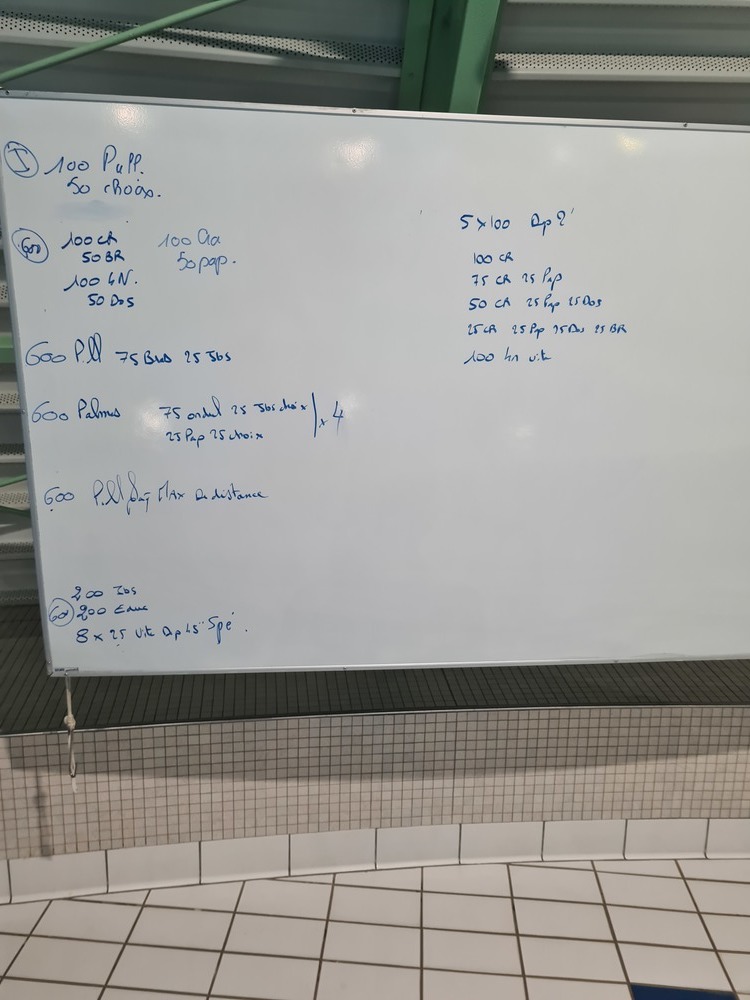 I 100 Pull.
50 choix.
600 100 CR 100 Cra
50 BR 50 pap.
100 4N.
50 Dos
600 Pull 75 Bras 25 Jbs
600 Palmes 75 ondul 25 Jbs choix
25 Pap 25 choix x 4
600 Pull Max De distance
200 Jbs
600 200 Educ
8 x 25 Vite Dp 45" Spé.
5 x 100 Dp 2'
100 CR
75 CR 25 Pap
50 CR 25 Pap 25 Dos
25 CR 25 Pap 25 Dos 25 BR
100 4n vite